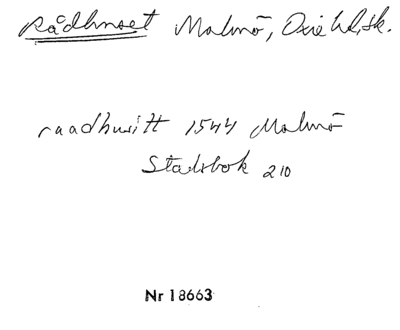 Rådhuset Malmö, Oxie hd, sk.
raadhusitt 1544 Malmö
Stadsbok 210
Nr 18663